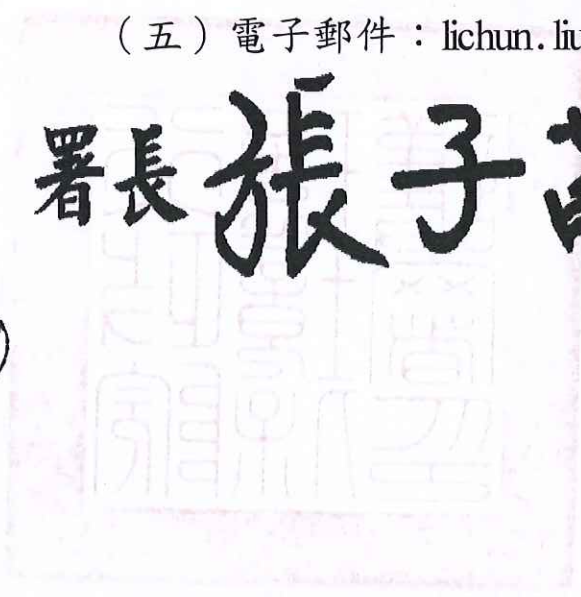 （五）電子郵件：lichun.liu
署長張子